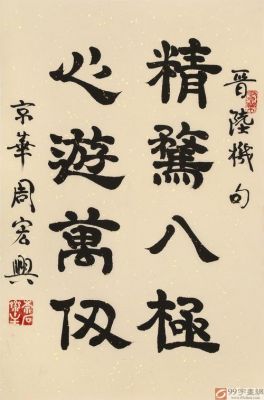 晋陸機句
精騖八極
心遊萬仭
京華周宏興
99字畫網